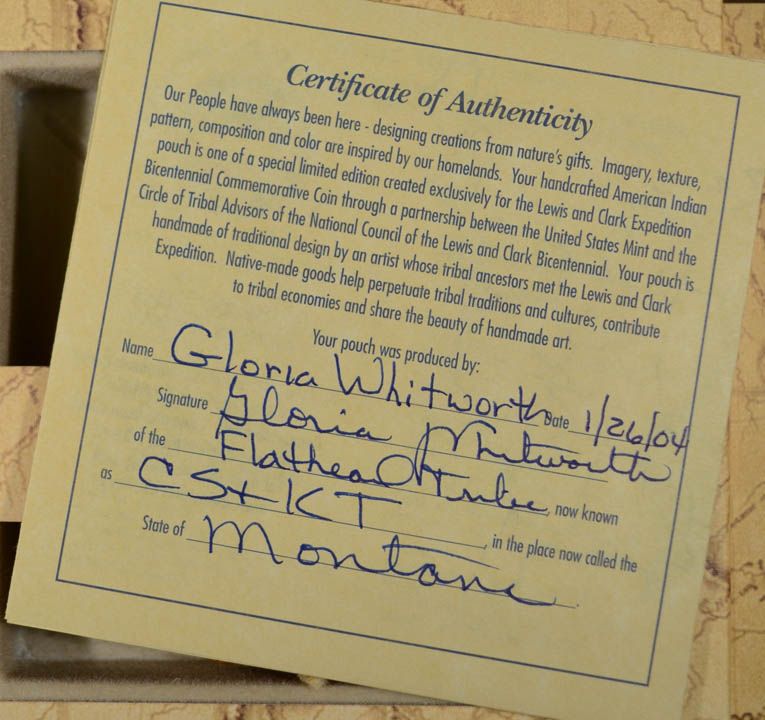 Certificate of Authenticity
Our People have always been here - designing creations from nature's gifts. Imagery, texture,
pattern, composition and color are inspired by our homelands. Your handcrafted American Indian
pouch is one of a special limited edition created exclusively for the Lewis and Clark Expedition
Bicentennial Commemorative Coin through a partnership between the United States Mint and the
Circle of Tribal Advisors of the National Council of the Lewis and Clark Bicentennial. Your pouch is
handmade of traditional design by an artist whose tribal ancestors met the Lewis and Clark
Expedition. Native-made goods help perpetuate tribal traditions and cultures, contribute
to tribal economies and share the beauty of handmade art.
Your pouch was produced by:
Name Gloria Whitworth Date 1/26/04
Signature Gloria Whitworth
of the Flathead Tribe, now known
as CS+KT, in the place now called the
State of Montana.